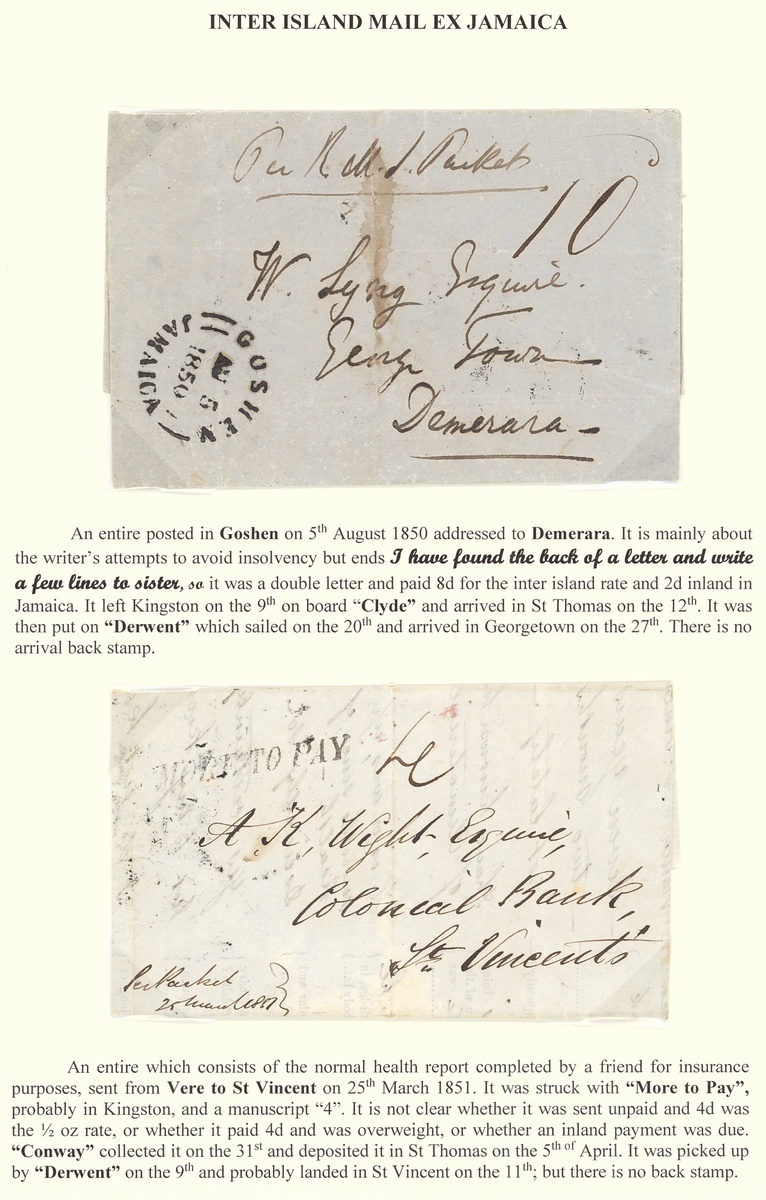 INTER ISLAND MAIL EX JAMAICA
Per R.M.S. Packet
10
W. Lyng Esquire.
George Town
Demerara
GOSHEN
JAMAICA
AU 5
1850
An entire posted in Goshen on 5th August 1850 addressed to Demerara. It is mainly about
the writer's attempts to avoid insolvency but ends I have found the back of a letter and write
a few lines to sister, so it was a double letter and paid 8d for the inter island rate and 2d inland in
Jamaica. It left Kingston on the 9th on board "Clyde" and arrived in St Thomas on the 12th. It was
then put on "Derwent" which sailed on the 20th and arrived in Georgetown on the 27th. There is no
arrival back stamp.
MORE TO PAY
4
A K, Wight, Esquire,
Colonial Bank,
St Vincent's
Per Packet
25 March 1851
An entire which consists of the normal health report completed by a friend for insurance
purposes, sent from Vere to St Vincent on 25th March 1851. It was struck with "More to Pay",
probably in Kingston, and a manuscript "4". It is not clear whether it was sent unpaid and 4d was
the ½ oz rate, or whether it paid 4d and was overweight, or whether an inland payment was due.
"Conway" collected it on the 31st and deposited it in St Thomas on the 5th of April. It was picked up
by "Derwent" on the 9th and probably landed in St Vincent on the 11th; but there is no back stamp.